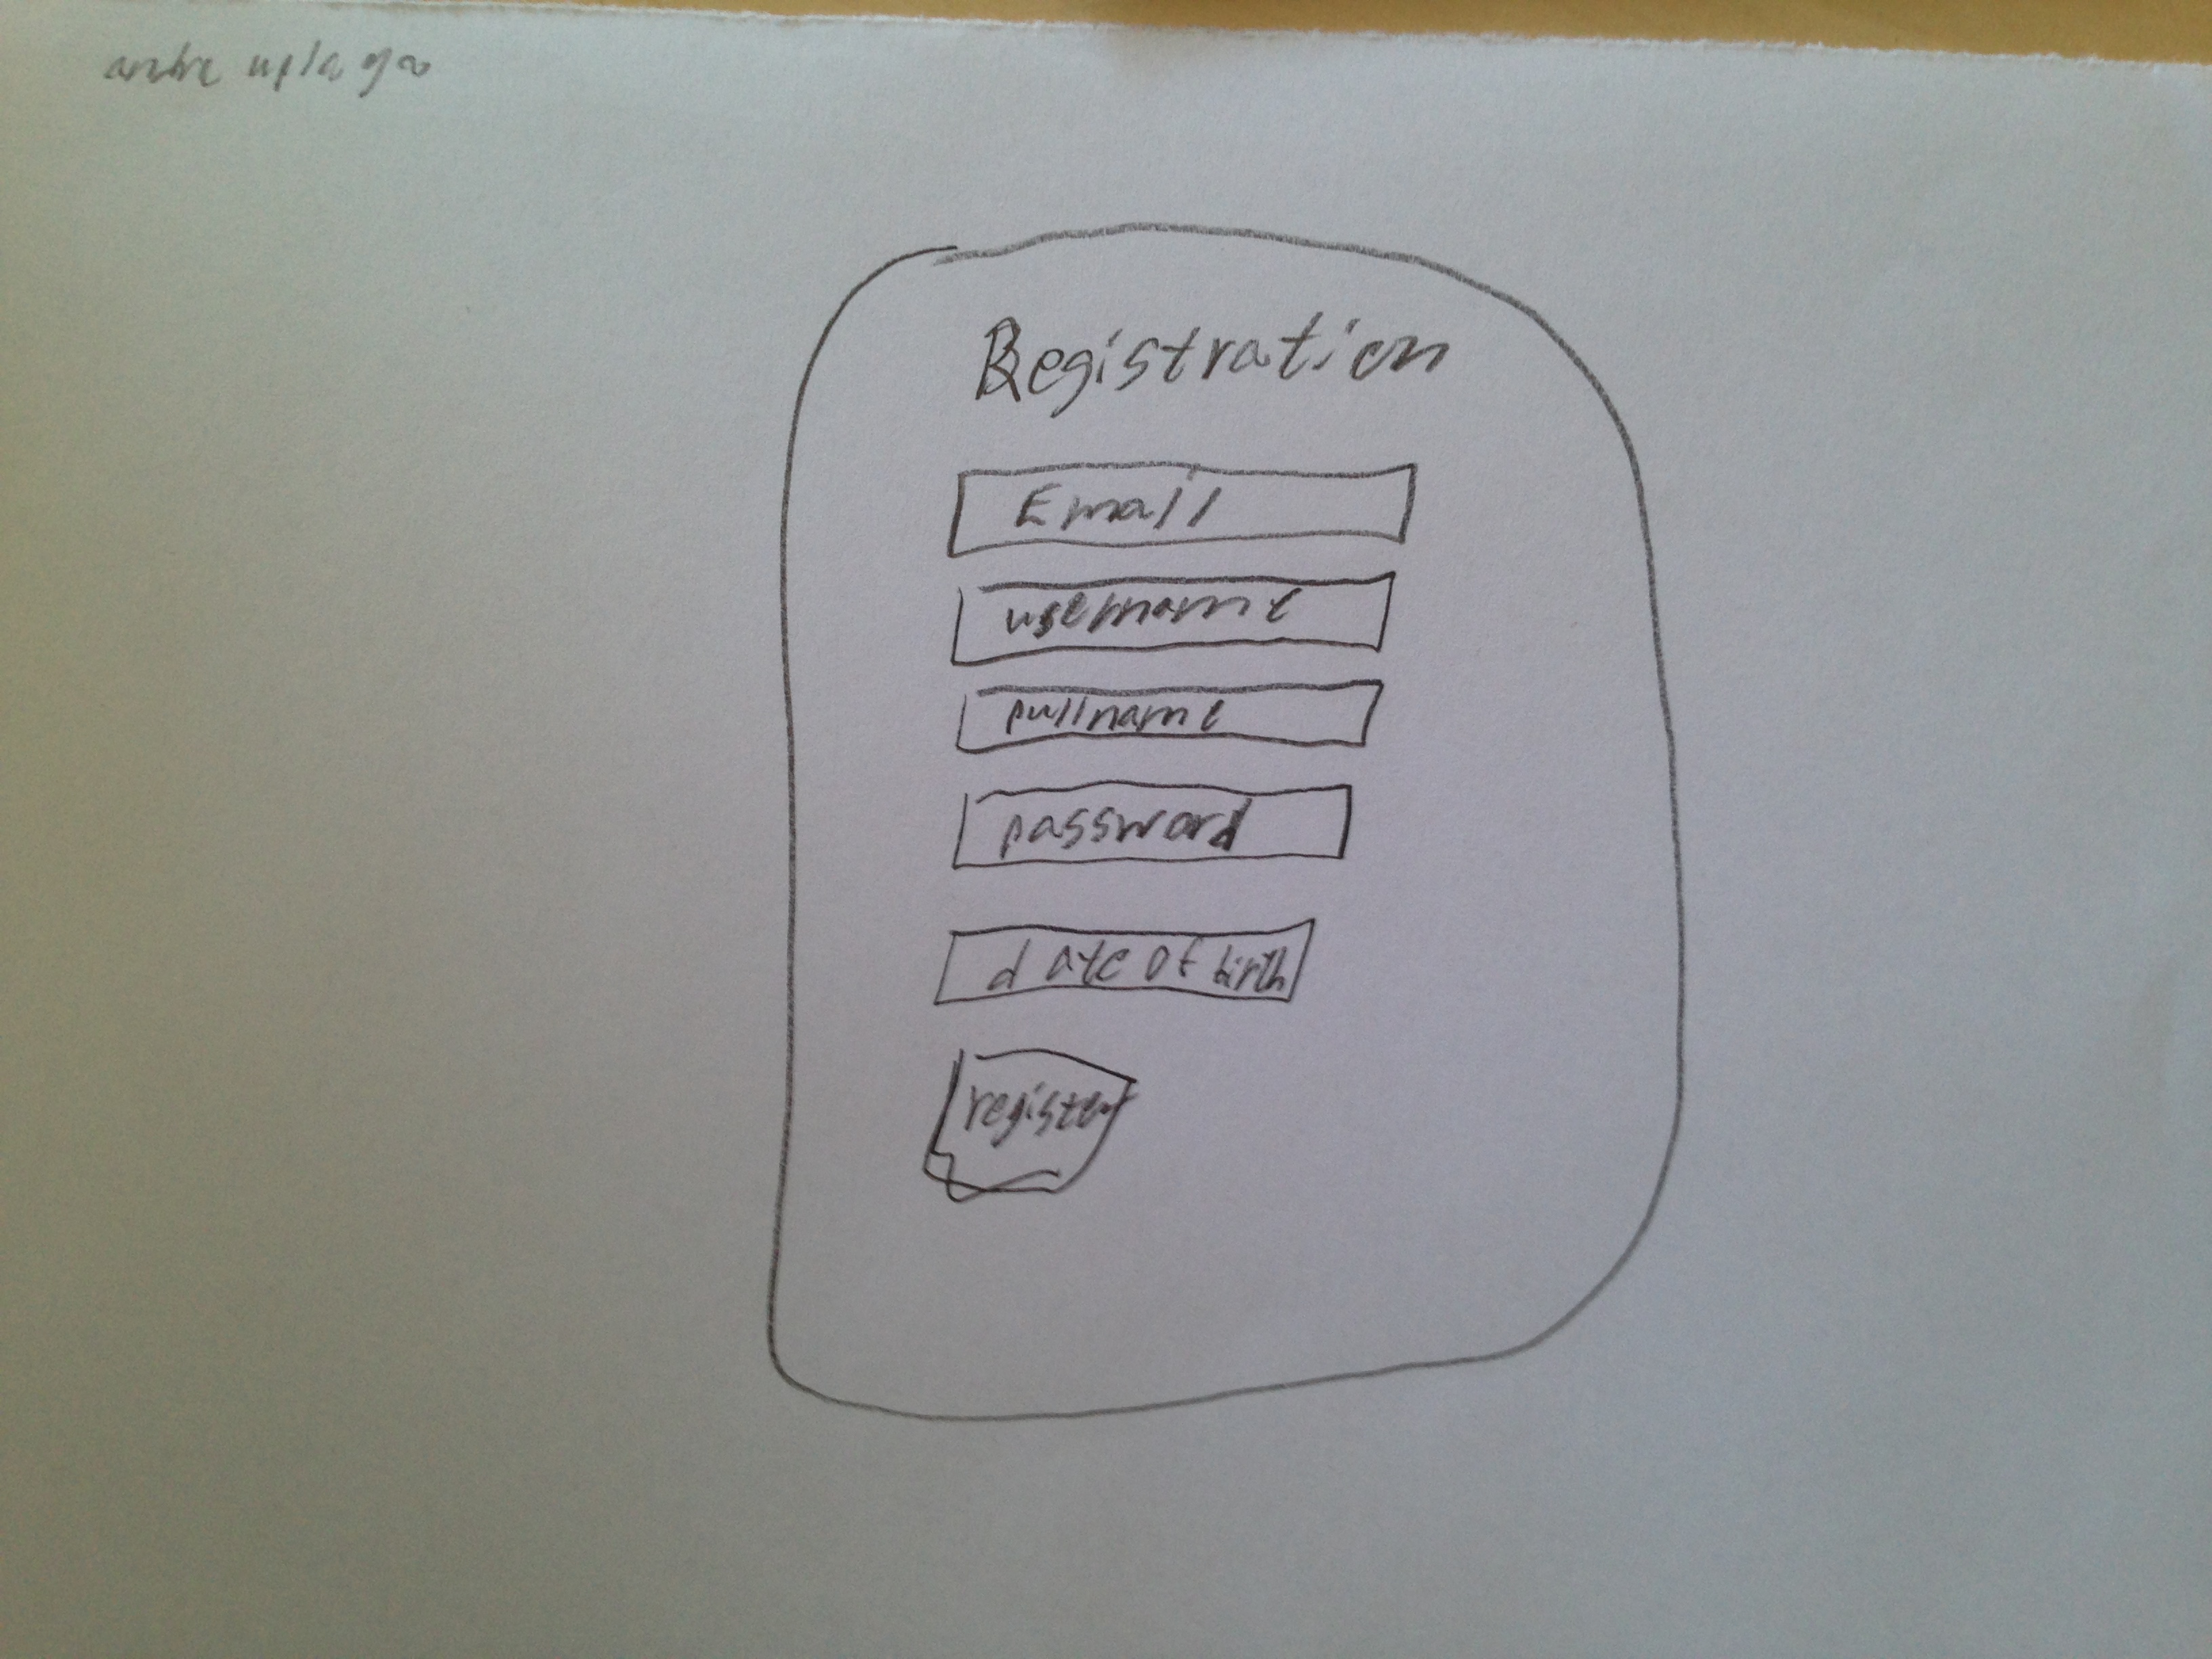 Registration
Email
username
pullname
password
date of birth
register